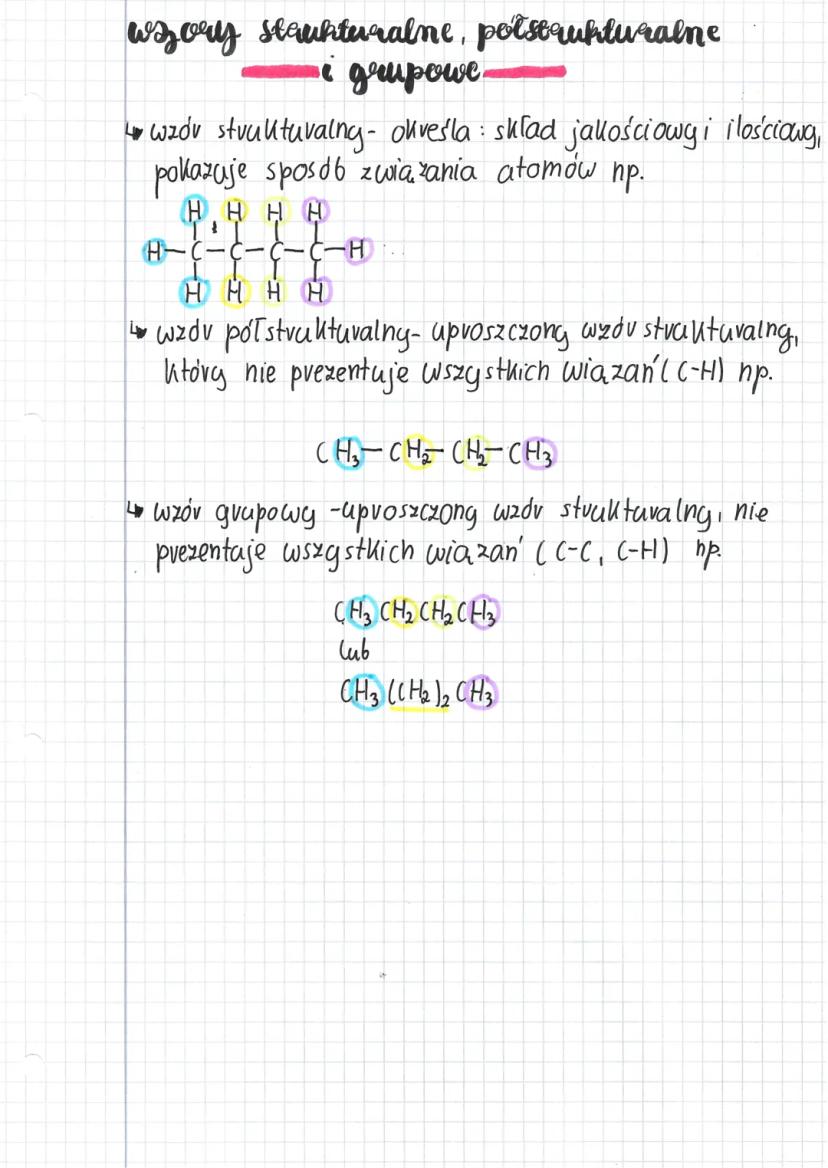 wzory strukturalne, półstrukturalne
i grupowe
↳ wzór strukturalny - określa : skład jakościowy i ilościowy,
pokazuje sposób związania atomów np.
H H H H
H-C-C-C-C-H
H H H H
↳ wzór półstrukturalny - uproszczony wzór strukturalny,
który nie prezentuje wszystkich wiązań (C-H) np.
CH₃-CH₂-CH₂-CH₃
↳ wzór grupowy - uproszczony wzór strukturalny, nie
prezentuje wszystkich wiązań (C-C, C-H) np.
CH₃CH₂CH₂CH₃
lub
CH₃(CH₂)₂CH₃